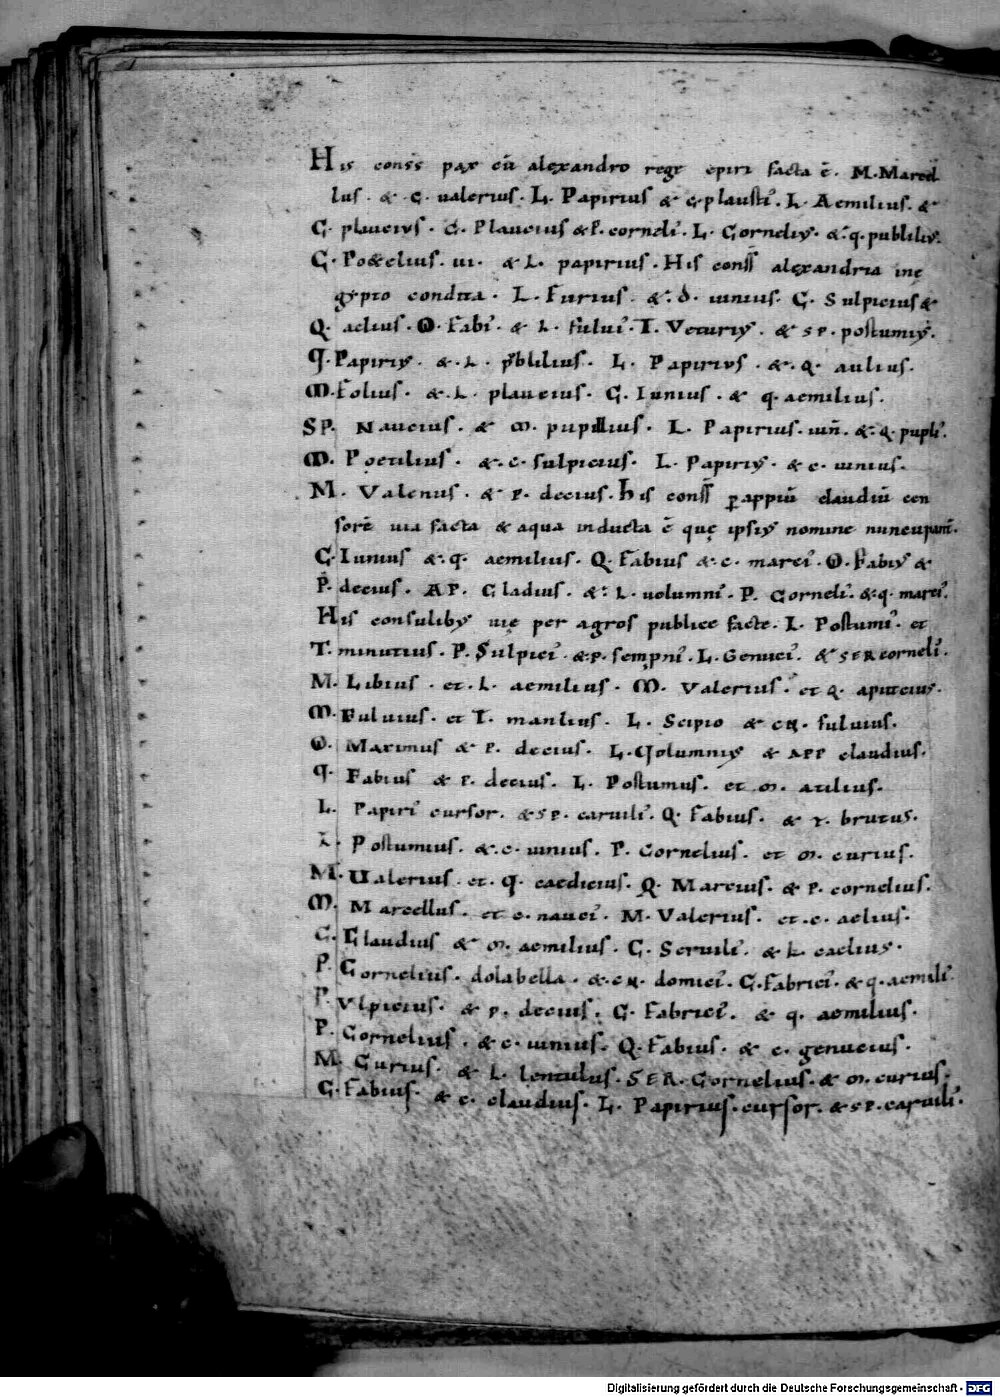 His conss pax cū alexandro rege epiri facta ē. M. Marcel
lus. & C. ualerius. L. Papirius & c. plausti. L. Aemilius. &
C. plaucius. C. Plaucius & P. corneli. L. Cornelius. & q. publilius.
C. Poetelius. iii. & L. papirius. His conss alexandria in ę
gypto condita. L. Furius. & d. iunius. C. Sulpicius &
Q. aelius. Q. Fabi. & L. fului. T. Veturius. & SP. postumius.
q. Papirius. & L. publilius. L. Papirius. & Q. aulius.
M. Folius. & L. plaucius. C. Iunius. & q. aemilius.
SP. Naucius. & M. pupillius. L. Papirius. iiii. & Q. pupli.
M. Poetilius. & c. sulpicius. L. Papirius. & c. iunius.
M. Valerius. & P. decius. his conss p appiū claudiū cen
sorē uia facta & aqua inducta ē quę ipsius nomine nuncupant.
C. Iunius & q. aemilius. Q. Fabius & c. marci. Q. Fabius &
P. decius. AP. Cladius. & L. uolumni. P. Corneli. & q. marci.
His consulibus uię per agros publice facte. L. Postumi. et
T. minutius. P. Sulpici. & P. sempni. L. Genuci. & SER corneli.
M. Libius. et L. aemilius. M. Valerius. et Q. aputeius.
M. Fuluius. et T. manlius. L. Scipio & CN. fuluius.
Q. Maximus & P. decius. L. Uolumnius & APP claudius.
q. Fabius & P. decius. L. Postumus. et M. atilius.
L. Papiri cursor. & SP. caruili. Q. Fabius. & I. brutus.
L. Postumius. & c. iunius. P. Cornelius. et M. curius.
M. Ualerius. et q. caedicius. Q. Marcius. & P. cornelius.
M. Marcellus. et c. nauci. M. Valerius. et c. aelius.
C. Claudius & M. aemilius. C. Seruili. & L. caelius.
P. Cornelius. dolabella. & CN. domici. C. Fabrici. & q. aemili.
P. Vlpicius. & P. decius. C. Fabrici. & q. aemilius.
P. Cornelius. & c. iunius. Q. Fabius. & c. genucius.
M. Curius. & L. lentulus. SER. Cornelius. & M. curius.
C. Fabius. & c. claudius. L. Papirius. cursor. & SP. caruili.
Digitalisierung gefördert durch die Deutsche Forschungsgemeinschaft - DFG